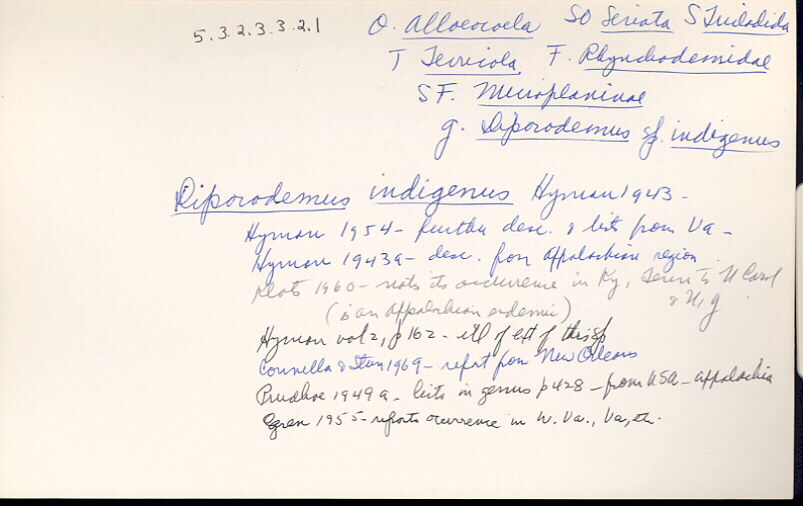 5.3.2.3.3.2.1
O. Alloeocoela SO Seriata S Tricladida
T Terricola F. Rhynchodemidae
SF. Microplaninae
g. Diporodemus sp. indigenus
Diporodemus indigenus Hyman 1943 -
Hyman 1954 - further desc. & lists from Va -
Hyman 1943a - desc. from Appalachian region
Klots 1960 - nots its occurrence in Ky, Tenn to N Carol
(is an Appalachian endemic) &
Hyman vol 2, p 162 - ill of ext of this sp
Connella & Stern 1969 - report from New Orleans
Prudhoe 1949a - lists in genus p 428 - from USA - Appalachia
1955 - reports ocurrence in W. Va., Va, etc.